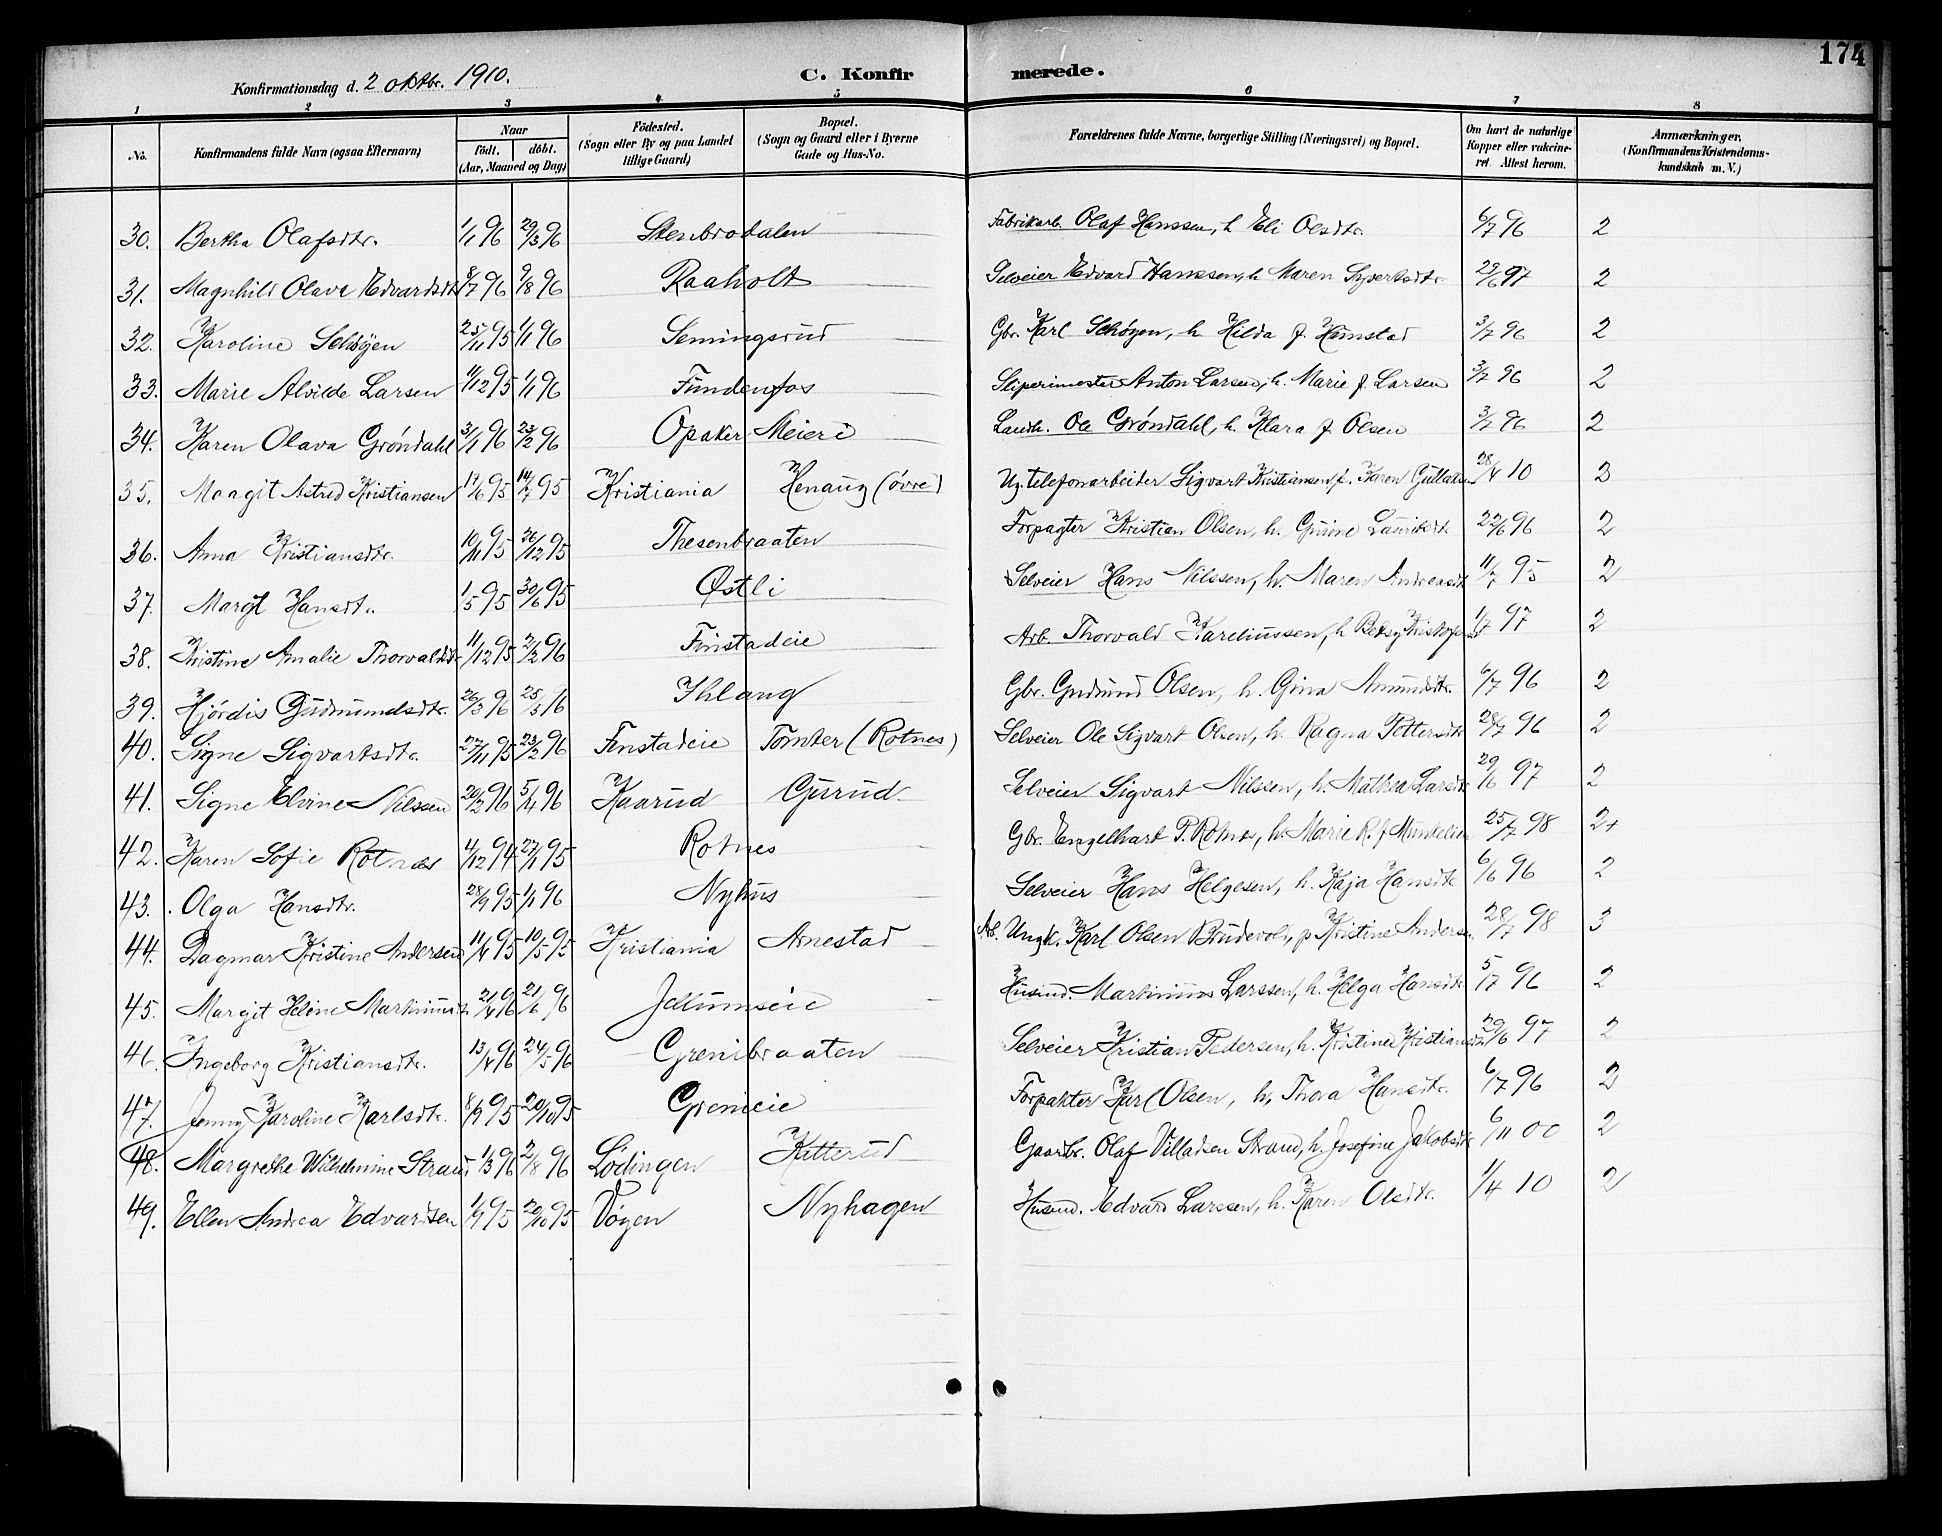 174
Konfirmationsdag d. 2 oktbr. 1910. C. Konfirmerede.
1 2 3 4 5 6 7 8
No. Konfirmandens fulde Navn (ogsaa Efternavn) Naar født. døbt. (Aar, Maaned og Dag) Fødested. (Sogn eller By og paa Landet tillige Gaard) Bopæl. (Sogn og Gaard eller i Byerne Gade og Hus-No. Forældrenes fulde Navne, borgerlige Stilling (Næringsvei) og Bopæl. Om havt de naturlige Kopper eller vakcineret. Attest herom. Anmærkninger. (Konfirmandens Kristendomskundskab m. V.)
30. Bertha Olafsdtr. 1/1 96 29/3 96 Stenbrodalen Fabrikarb. Olaf Hanssen, h. Eli Olsdtr. 6/7 96 2
31. Magnhild Olava Edvardsdtr 8/7 96 9/8 96 Raaholt Selveier Edvard Hanssen, h. Maren Syvertsdtr. 29/6 97 2
32. Karoline Schøyen 25/11 95 1/1 96 Semingsrud Gbr. Karl Schøyen, h. Hilda f. Hemstad 3/7 96 2
33. Marie Alvilde Larsen 11/12 95 1/1 96 Fundenfos Sliperimester Anton Larsen, h. Marie f. Larsen 3/7 96 2
34. Karen Olava Grøndahl 3/1 96 23/2 96 Opaker Meieri Landh. Ole Grøndahl, h. Klara f. Olsen 3/7 96 2
35. Maagit Astrid Kristiansen 17/6 95 14/7 95 Kristiania Henaug (øvre) Ug. telefonarbeider Sigvart Kristiansen, f. Karen 28/4 10 3
36. Anna Kristiansdtr. 10/11 95 26/12 95 Thesenbraaten Forpagter Kristian Olsen, h. Gurine 22/6 96 2
37. Margit Hansdt. 1/5 95 30/6 95 Østli Selveier Hans Nilssen, h. Maren Andreasdt 11/7 95 2
38. Kristine Amalie Thorvaldsdtr 11/12 95 2/2 96 Finstadeie Arb. Thorvald Kareliussen, h. Betsy 1/7 97 2
39. Hjørdis Gudmundsdtr. 26/3 96 25/5 96 Ihlang Gbr. Gudmund Olsen, h. Gina Amundsdtr. 6/7 96 2
40. Signe Sigvartsdtr. 27/11 95 23/2 96 Finstadeie Tomter (Rotnes) Selveier Ole Sigvart Olsen, h. Ragna Pettersdt 28/7 96 2
41. Signe Elvine Nilssen 20/2 96 5/4 96 Kaarud Gjerud. Selveier Sigvart Nilssen, h. Mathea Larsdtr 29/6 97 2
42. Karen Sofie Rotnes 4/12 94 27/1 95 Rotnes Gbr. Engelhart P. Rotnes, h. Marie R. f. 25/7 98 2+
43. Olga Hansdtr. 28/9 95 1/1 96 Nyhus Selveier Hans Helgesen, h. Kaja Hansdtr 6/6 96 2
44. Dagmar Kristine Andersen 11/4 95 10/5 95 Kristiania Arnestad Arb. Ungk. Karl Olsen Brudevold, p. Kristine Andersen 28/7 98 3
45. Margit Helene Martinusdt 21/4 96 21/6 96 Jellumseie Husmd. Martinus Larssen, h. Helga Hansdtr 5/7 96 2
46. Ingeborg Kristiansdtr. 13/4 96 24/5 96 Grenibraaten Selveier Kristian Pedersen, h. Kristine Kristiansdt 29/6 97 2
47. Jenny Karoline Karlsdtr. 8/9 95 20/10 95 Grenieie Forpakter Karl Olsen, h. Thora Hansdtr. 6/7 96 2
48. Margrethe Wilhelmine Strand 1/3 96 2/8 96 Lødingen Kitterud Gaardbr. Olaf Villadsen Strand, h. Josefine Jakobsdtr 6/11 00 2
49. Ellen Andrea Edvardsen 1/9 95 20/10 95 Vøyen Nyhagen Husmd. Edvard Larssen, h. Karen Olsdtr. 1/4 10 2